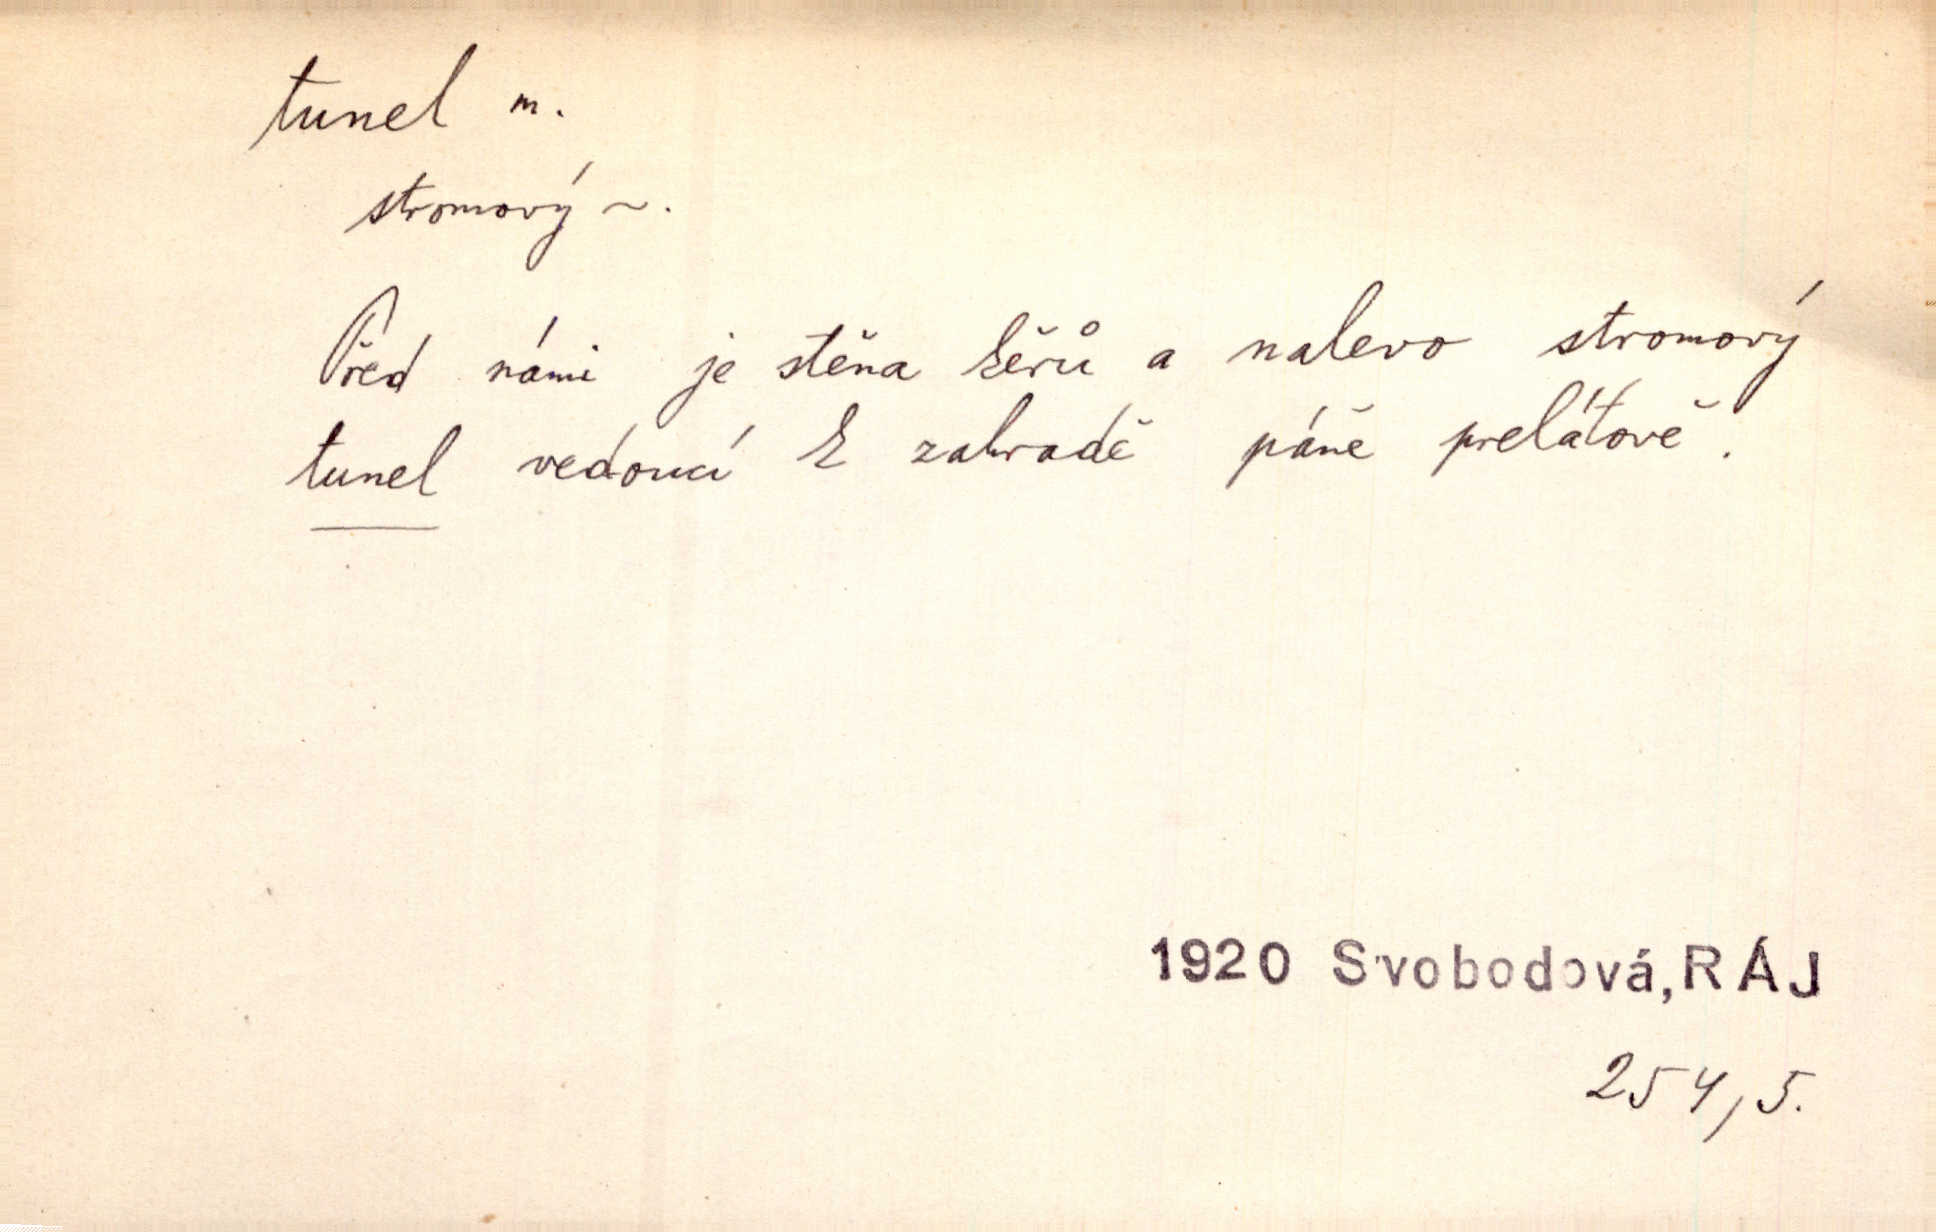 tunel m.
stromový ~.
Před námi je stěna keřů a nalevo stromový
tunel vedoucí k zahradě páně prelátově.
1920 Svobodová, RÁJ
254, 5.